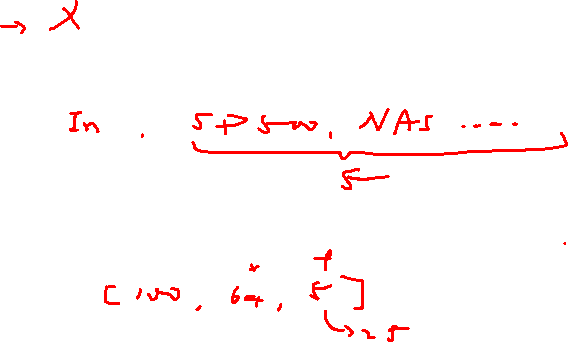 → X
In . SP500, NAS ....
5
[ 100, 64, 5 ]
→ 25